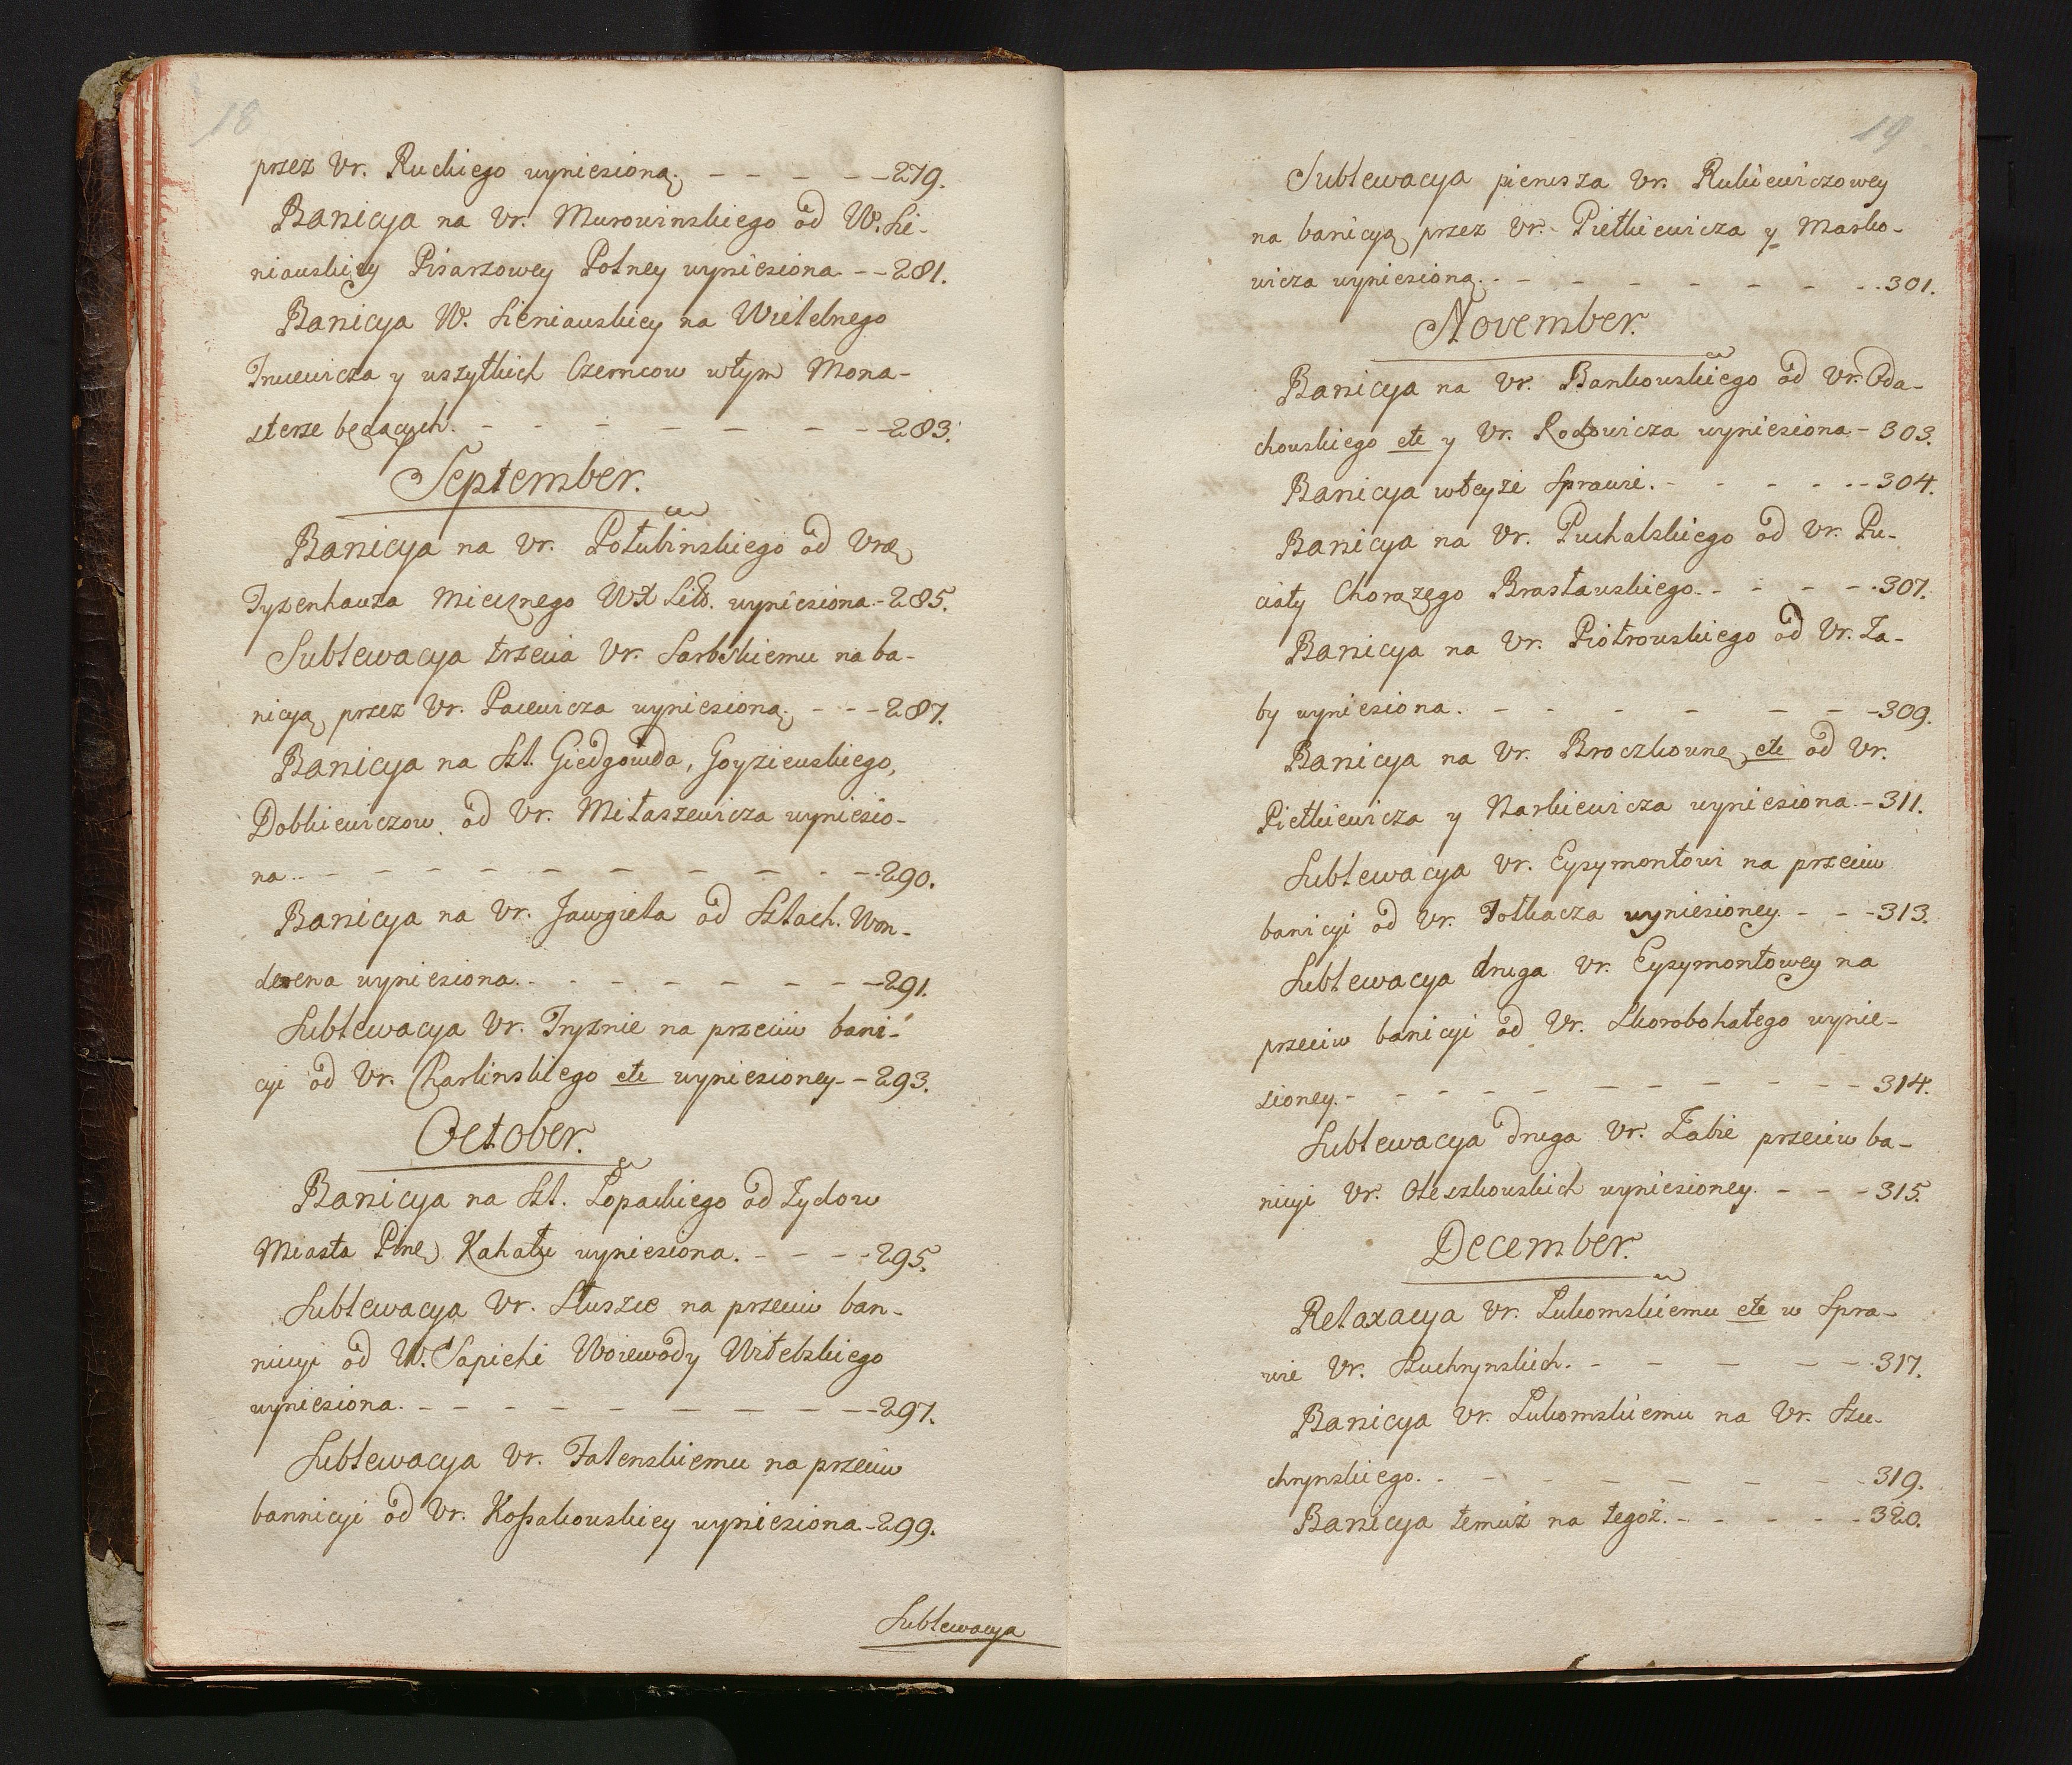 18
przez Ur. Ruckiego wyniesioną. – – – – – 279.
Banicya na Ur. Murowinskiego od W. Sie-
niawskiey Pisarzowey Polney wyniesiona. – – 281.
Banicya W. Sieniawskiey na Wielebnego
Inucewicza y wszytkich Czerncow w tym Mona-
sterze będących. – – – – – – – 283.
September.
Banicya na Ur. Połubinskiego od Urę
Tyzenhauza Miecznego WX Litt. wyniesiona. – 285.
Sublewacya trzecia Ur. Sarbskiemu na ba-
nicyą przez Ur. Pacewicza wyniesioną. – – – 287.
Banicya na Szl. Giedgowda, Goyzieuskiego,
Dobkiewiczow, od Ur. Milaszewicza wyniesio-
na. – – – – – – – – – – 290.
Banicya na Ur. Jawgiela od Szlach. Won-
derena wyniesiona. – – – – – – – – 291.
Sublewacya Ur. Tryznie na przeciw bani-
cyi od Ur. Charlinskiego etc wyniesioney. – 293.
October.
Banicya na Szl. Łopackiego od Żydow
Miasta Kahału wyniesiona. – – – – 295.
Sublewacya Ur. Słuszce na przeciw ban-
nicyi od W. Sapiehi Woiewody Witebskiego
wyniesiona. – – – – – – – – – 297.
Sublewacya Ur. Falenskiemu na przeciw
bannicyi od Ur. Kossakowskiey wyniesiona. – 299.
Sublewacya
19
Sublewacya pierwsza Ur. Rukiewiczowey
na banicyą przez Ur. Pietkiewicza y Marko-
wicza wyniesioną. – – – – – – – – 301.
November.
Banicya na Ur. Bankowskiego od Ur. Oda-
chowskiego etc y Ur. Rodowicza wyniesiona. – 303.
Banicya w teyże Sprawie. – – – – – – 304.
Banicya na Ur. Puchalskiego od Ur. Pu-
ciaty Chorążego Brasławskiego. – – – – – 307.
Banicya na Ur. Piotrowskiego od Ur. Ża-
by wyniesiona. – – – – – – – – 309.
Banicya na Ur. Broczkownę etc od Ur.
Pietkiewicza y Narkiewicza wyniesiona. – 311.
Sublewacya Ur. Eysymontowi na przeciw
banicyi od Ur. Tolkacza wyniesioney. – – – 313.
Sublewacya druga Ur. Eysymontowey na
przeciw banicyi od Ur. Skorobohatego wynie-
sioney. – – – – – – – – – – 314.
Sublewacya druga Ur. Żabie przeciw ba-
nicyi Ur. Oleszkowskich wyniesioney. – – – 315.
December.
Relaxacya Ur. Łukomskiemu etc w Spra-
wie Ur. Szuchrynskich. – – – – – – 317.
Banicya Ur. Łukomskiemu na Ur. Szu-
chrynskiego. – – – – – – – – – 319.
Banicya temuż na tegoż. – – – – – 320.